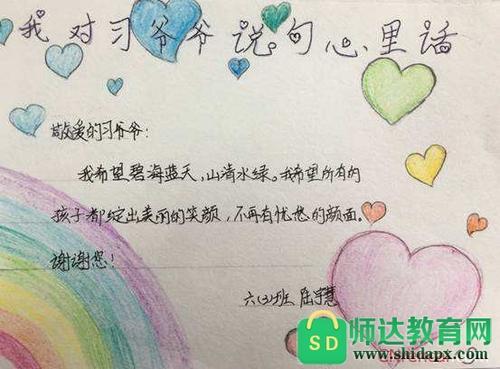 我对习爷爷说句心里话
敬爱的习爷爷:
我希望碧海蓝天,山清水绿。我希望所有的
孩子都绽出美丽的笑颜,不再有忧愁的颜面。
谢谢您!
六(3)班
SD
师达教育网
www.shidapx.com